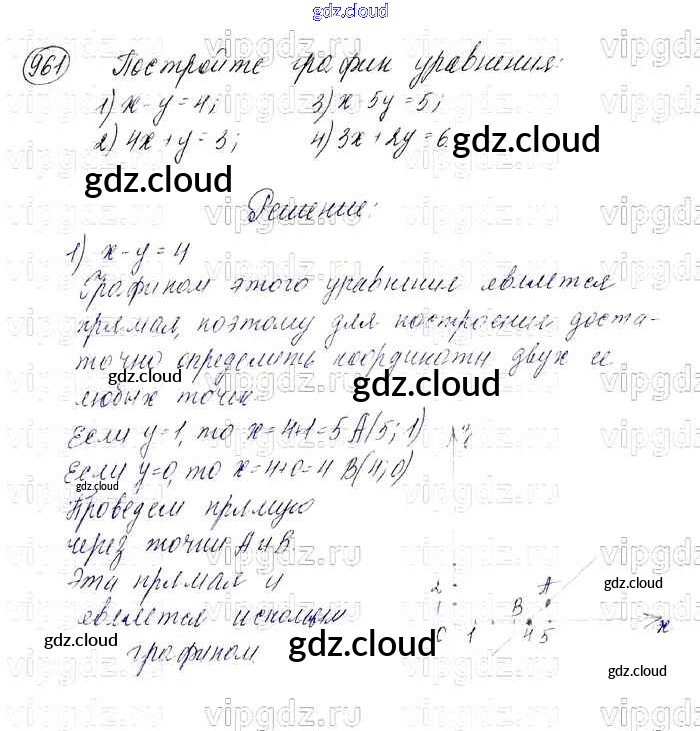 gdz.cloud
961 Постройте график уравнения:
1) x-y=4; 3) x-5y=5;
2) 4x+y=3; 4) 3x+2y=6.
gdz.cloud
gdz.cloud
Решение:
1) x-y=4
Графиком этого уравнения является
прямая, поэтому для построения доста-
точно определить координаты двух ее
gdz.cloud
gdz.cloud
любых точек
Если y=1, то x=4+1=5 A(5; 1)
Если y=0, то x=4+0=4 B(4; 0)
gdz.cloud
Проведем прямую
через точки A и B.
Эта прямая и
является искомым
графиком.
y
2
1
0 1 4 5
B
A
x
gdz.cloud
gdz.cloud
gdz.cloud
gdz.cloud
vipgdz.ru